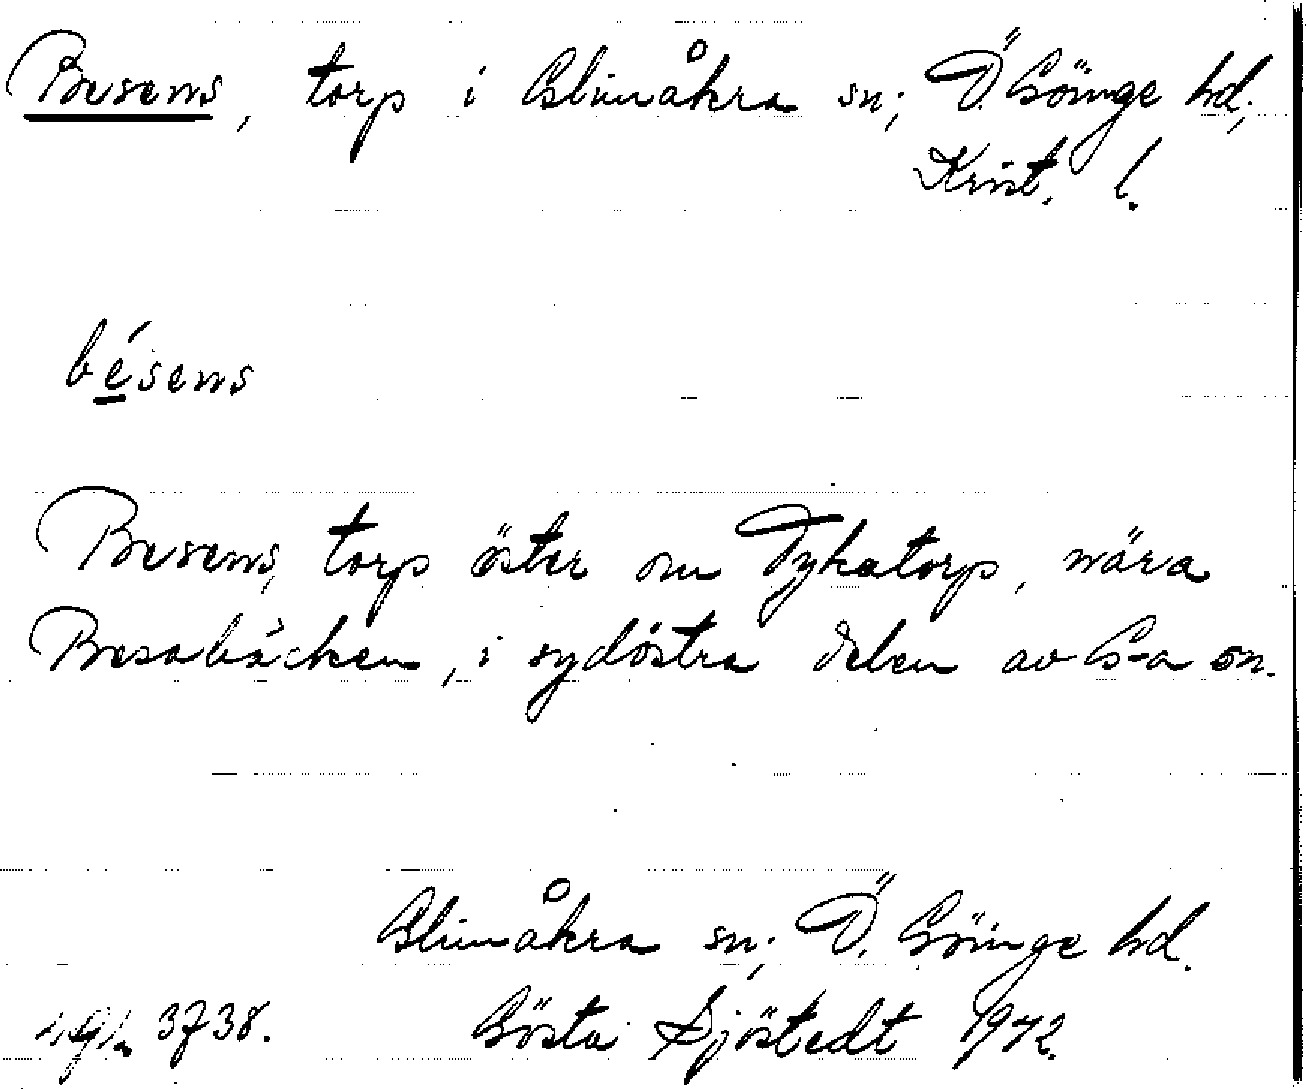 Besens, torp i Glimåkra sn; Ö. Göinge hd;
Krist. l.
bésens
Besens, torp öster om Dykatorp, nära
Besabäcken, i sydöstra delen av G-a sn.
Glimåkra sn; Ö. Göinge hd.
3738. Gösta Sjöstedt 1942.